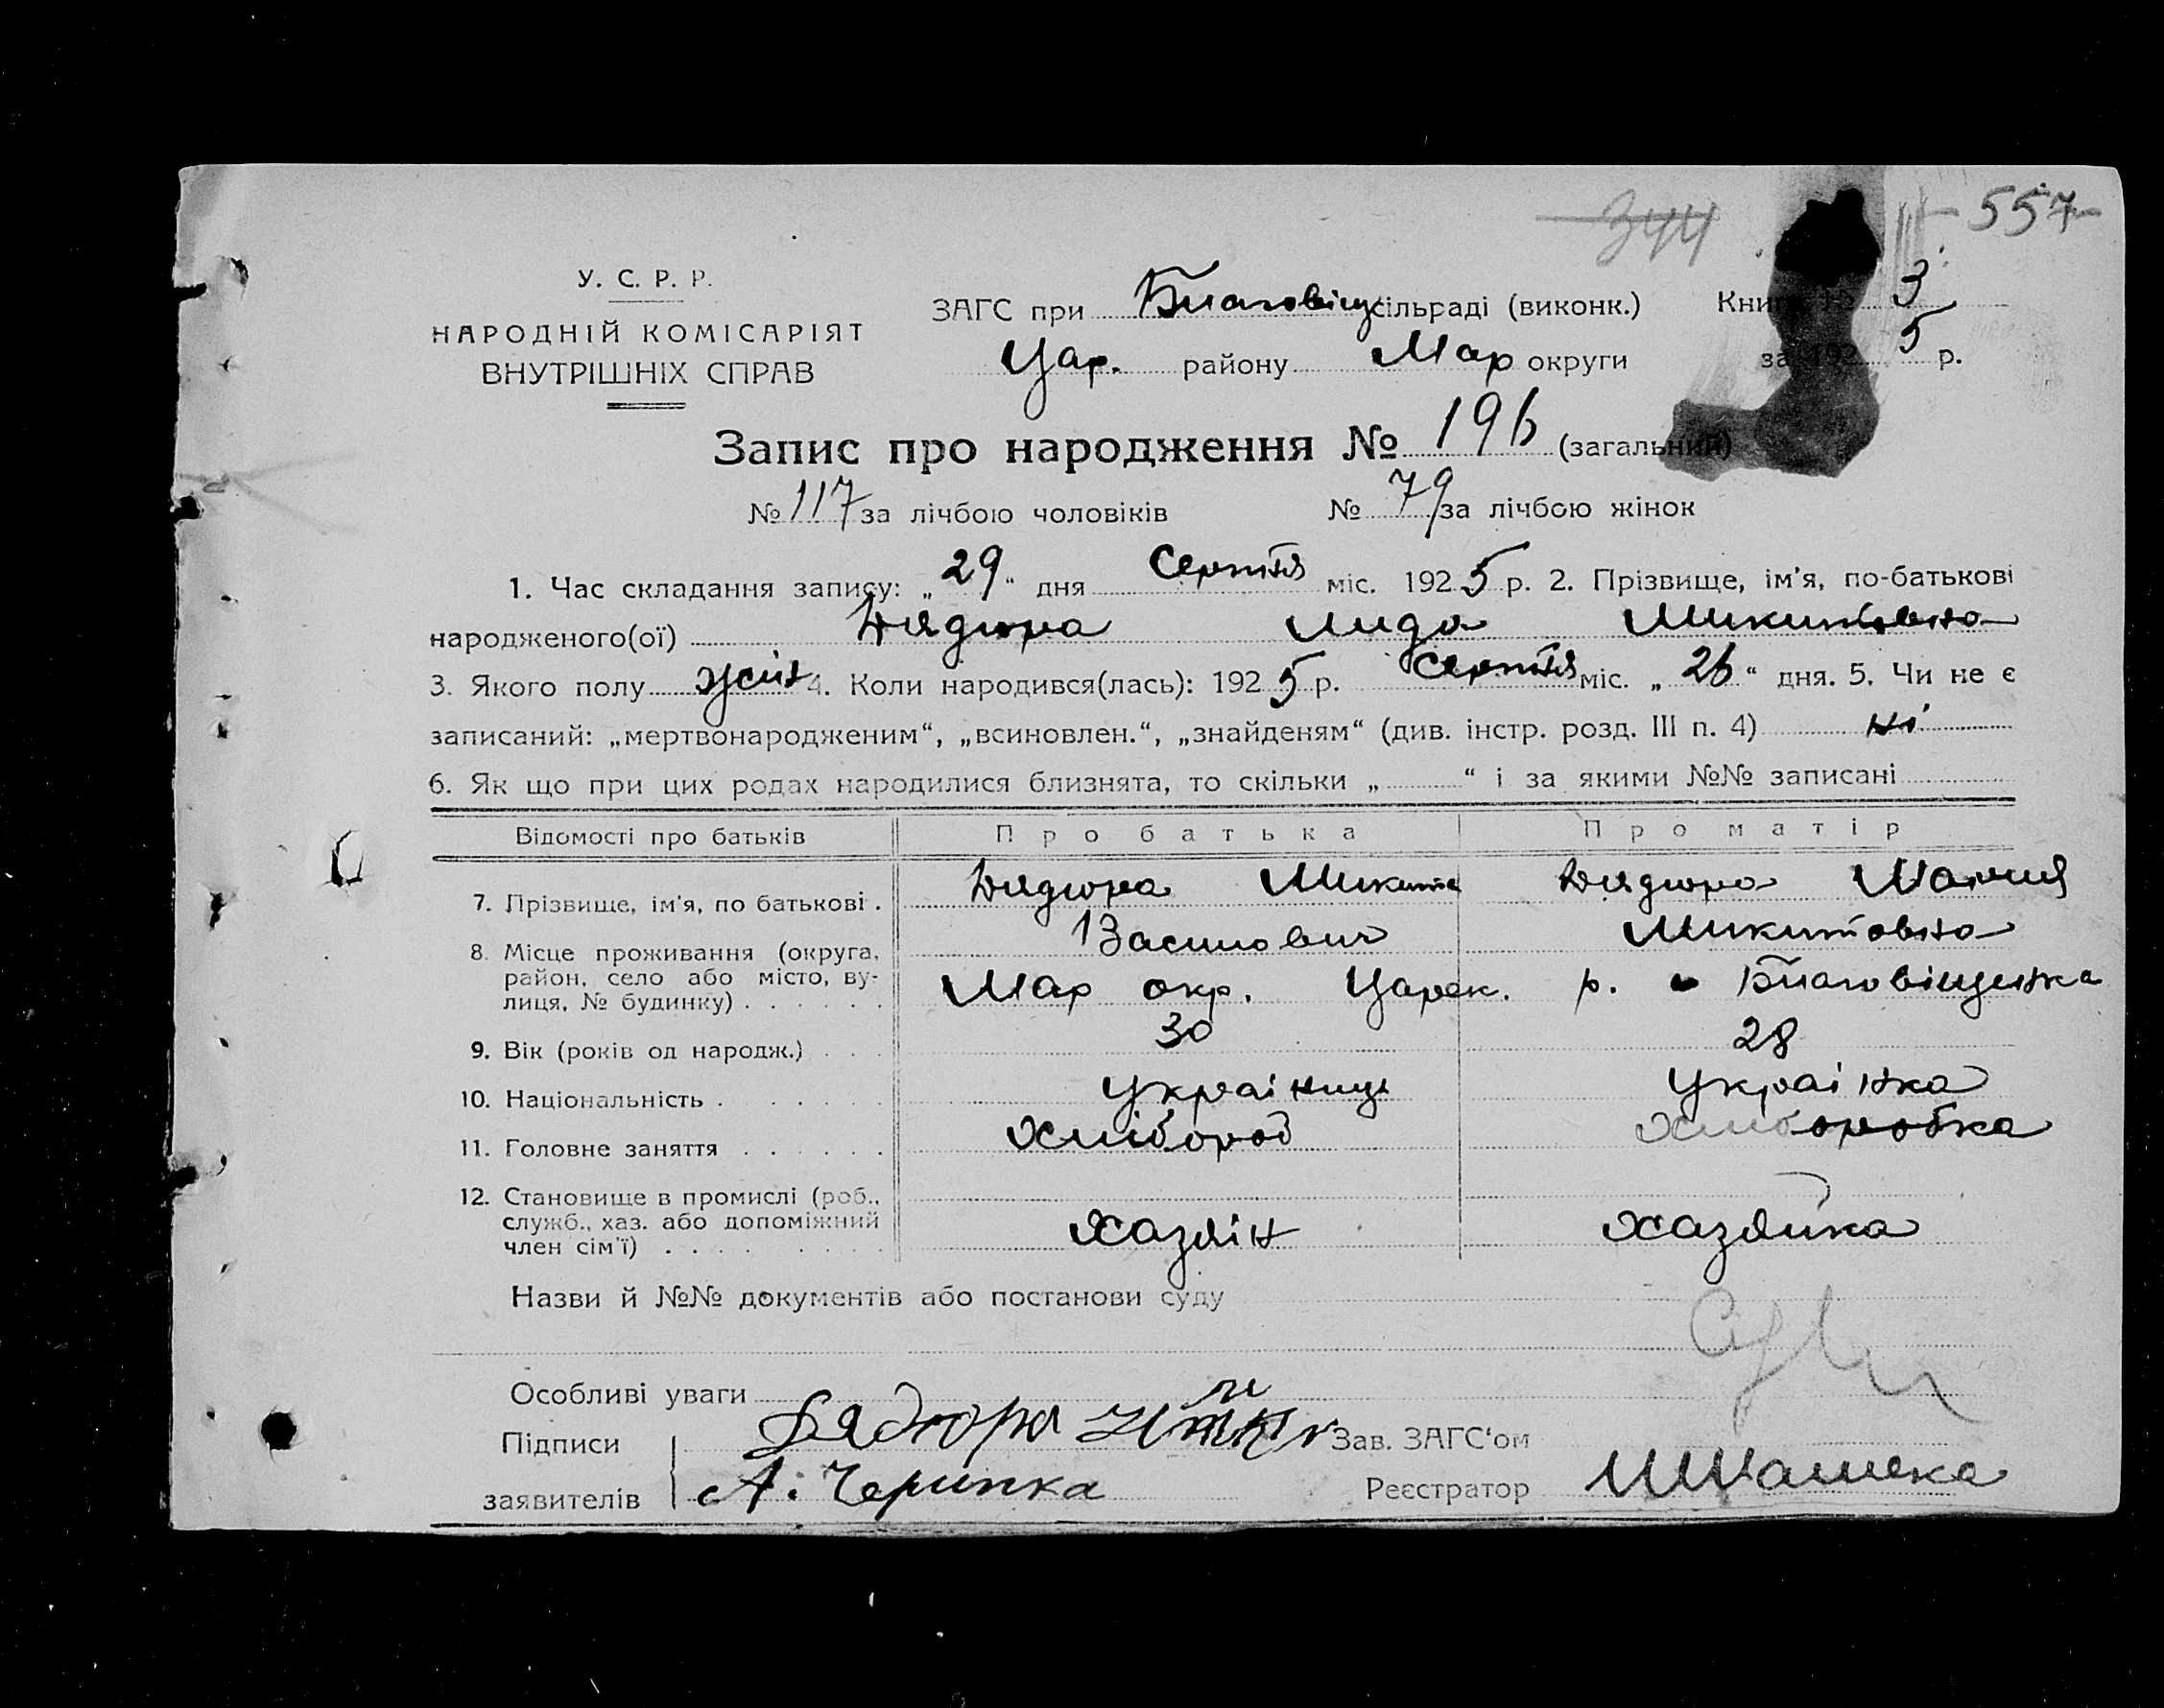 344 - 557 -
У. С. Р. Р.
НАРОДНІЙ КОМІСАРІЯТ
ВНУТРІШНІХ СПРАВ
ЗАГС при Благовіщ сільраді (виконк.) Книга № 3
Цар. району Мар округи за 1925 р.
Запис про народження № 196 (загальний)
№ 117 за лічбою чоловіків № 79 за лічбою жінок
1. Час складання запису: „29“ дня Серпня міс. 1925 р. 2. Прізвище, ім'я, по-батькові
народженого(ої) Дядюра Лида Микитовна
3. Якого полу жін 4. Коли народився(лась): 1925 р. Серпня міс. „26“ дня. 5. Чи не є
записаний: „мертвонародженим“, „всиновлен.“, „знайденям“ (див. інстр. розд. III п. 4) ні
6. Як що при цих родах народилися близнята, то скільки „ “ і за якими №№ записані
Відомості про батьків Про батька Про матір
7. Прізвище, ім'я, по батькові . Дядюра Микита Дядюра
Василович Микитовна
8. Місце проживання (округа,
район, село або місто, ву-
лиця, № будинку) . . . . . . Мар окр. Царек. р. Благовіщенка
9. Вік (років од народж.) . . . 30 28
10. Національність . . . . . . Украінць Украінка
11. Головне заняття . . . . . . Хлібороб Хліборобка
12. Становище в промислі (роб.,
служб., хаз. або допоміжний
член сім'ї) . . . . . . . . Хазяін Хазяйка
Назви й №№ документів або постанови суду
Особливі уваги
Підписи Дядюра Зав. ЗАГС'ом
заявителів А. Черипка Реєстратор